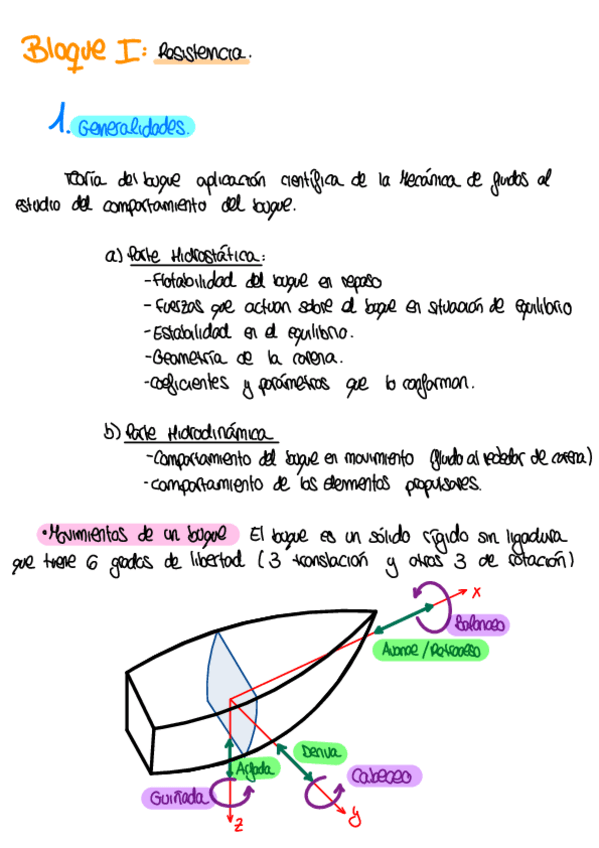 Bloque I: Resistencia.
1. Generalidades.
Teoría del buque aplicación científica de la Mecánica de fluidos al
estudio del comportamiento del buque.
a) Parte Hidrostática:
-Flotabilidad del buque en reposo
-Fuerzas que actuan sobre el buque en situación de equilibrio
-Estabilidad en el equilibrio.
-Geometría de la carena.
-Coeficientes y parámetros que lo conforman.
b) Parte Hidrodinámica
-Comportamiento del buque en movimiento (fluido al rededor de carena)
-Comportamiento de los elementos propulsores.
•Movimientos de un buque El buque es un sólido rígido sin ligadura
que tiene 6 grados de libertad (3 translación y otros 3 de rotación)
x
Balanceo
Avance/Retroceso
Deriva
Arfada
Cabeceo
Guiñada
y
z